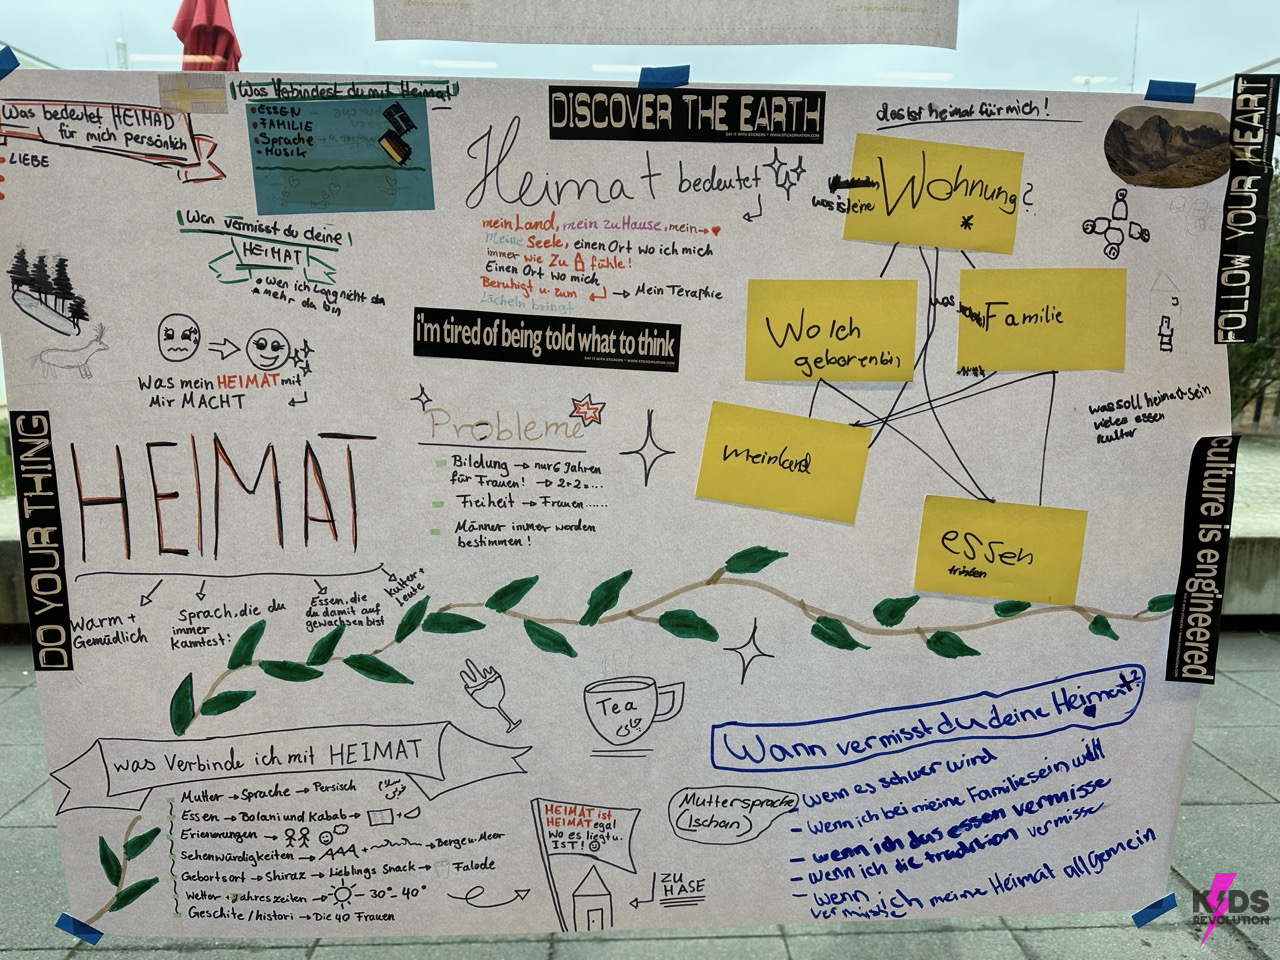 Was bedeutet HEIMAD
für mich persönlich
LIEBE
Was Verbindest du mit Heimat
ESSEN
FAMILIE
Sprache
MUSIK
Wan vermisst du deine
HEIMAT
Wen ich Lang nicht
mehr da bin
Was mein HEIMAT mit
Mir MACHT
DISCOVER THE EARTH
SAY IT WITH STICKERS * WWW.STICKERNATION.COM
Heimat bedeutet
mein Land, mein zu Hause, mein
Meine Seele, einen Ort wo ich mich
immer wie Zu fühle!
Einen Ort wo mich
Beruhigt u. zum → Mein Teraphie
Lächeln bringt
i'm tired of being told what to think
SAY IT WITH STICKERS * WWW.STICKERNATION.COM
das ist heimat für mich!
was ist eine Wohnung?
*
Wo Ich
geboren bin
was Familie
mein land
essen
trinken
was soll heimat sein
vieles essen
kultur
FOLLOW YOUR HEART
culture is engineered
DO YOUR THING
Probleme
Bildung → nur 6 Jahren
für Frauen! → 2+2=...
Freiheit → Frauen......
Männer immer worden
bestimmen!
HEIMAT
Warm +
Gemüdlich
Sprach, die du
immer
Kanntest!
Essen, die
du damit auf
gewachsen bist
Kultur +
Leute
Tea
چای
was Verbinde ich mit HEIMAT
Mutter → Sprache → Persisch
Essen → Bolani und Kabab →
Erienerungen →
Sehenwürdigkeiten → Berge u. Meer
Gebortsort → Shiraz → Lieblings Snack → Falode
Wetter + Jahreszeiten → 30°-40°
Geschite / histori → Die 40 Frauen
HEIMAT ist
HEIMAT egal
Wo es liegt u.
IST!
ZU
HASE
Muttersprache
(Ischan)
Wann vermisst du deine Heimat?
- wenn es schwer wird
- Wenn ich bei meine Familie sein will
- wenn ich das essen vermisse
- wenn ich die tradition vermisse
- wenn ich meine Heimat allgemein
vermisse
KIDS
REVOLUTION